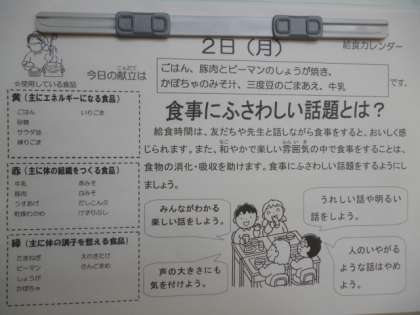 2日（月）
給食カレンダー
こんだて
今日の献立は
ごはん、豚肉とピーマンのしょうが焼き、
かぼちゃのみそ汁、三度豆のごまあえ、牛乳
です。
☆使用している食品
黄（主にエネルギーになる食品）
ごはん いりごま
砂糖
サラダ油
練りごま
赤（主に体の組織をつくる食品）
牛乳 赤みそ
豚肉 白みそ
うすあげ だしこんぶ
乾燥わかめ けずりぶし
緑（主に体の調子を整える食品）
たまねぎ えのきたけ
ピーマン さんどまめ
しょうが
かぼちゃ
食事にふさわしい話題とは？
給食時間は、友だちや先生と話しながら食事をすると、おいしく感
じられます。また、和やかで楽しい雰囲気の中で食事をすることは、
食物の消化・吸収を助けます。食事にふさわしい話題をするようにし
ましょう。
みんながわかる
楽しい話をしよう。
うれしい話や明るい
話をしよう。
声の大きさにも
気を付けよう。
人のいやがる
ような話はやめ
よう。